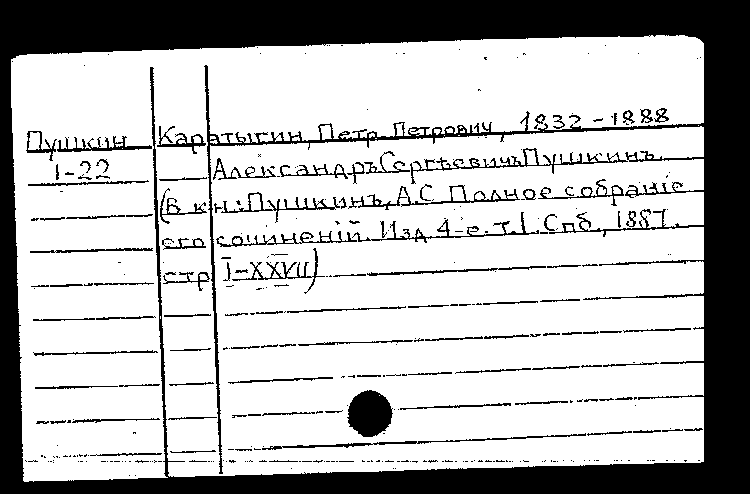 Пушкин Каратыгин, Петр Петрович, 1832-1888
I-22 Александръ Сергѣевичъ Пушкинъ.
(В кн.: Пушкинъ, А.С. Полное собраніе
его сочиненій. Изд. 4-е. т. I. Спб., 1887.
стр. I-XXVII)